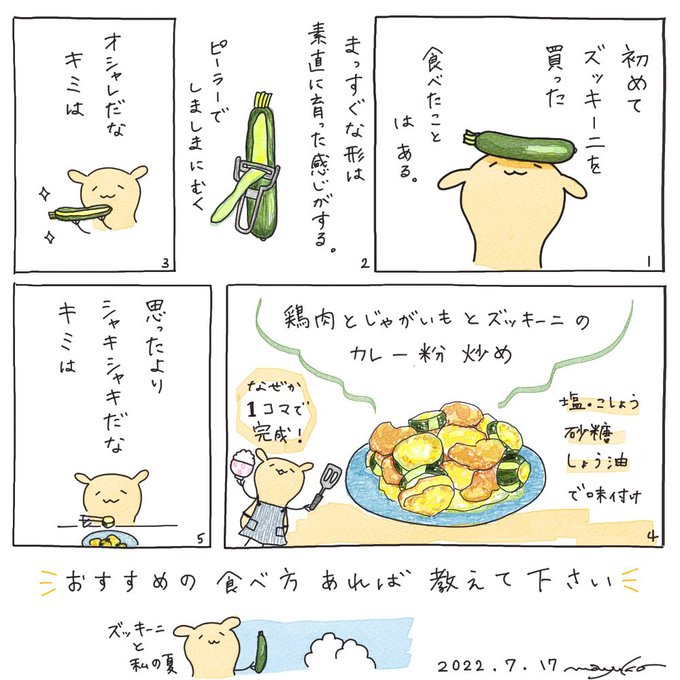 初めて
ズッキーニを
買った
食べたこと
はある。
1
まっすぐな形は
素直に育った感じがする。
ピーラーで
しましまにむく
2
オシャレだな
キミは
3
鶏肉とじゃがいもとズッキーニの
カレー粉炒め
なぜか
1コマで
完成!
塩。こしょう
砂糖
しょう油
で味付け
4
思ったより
シャキシャキだな
キミは
5
おすすめの食べ方あれば教えて下さい
ズッキーニ
と
私の夏
2022.7.17